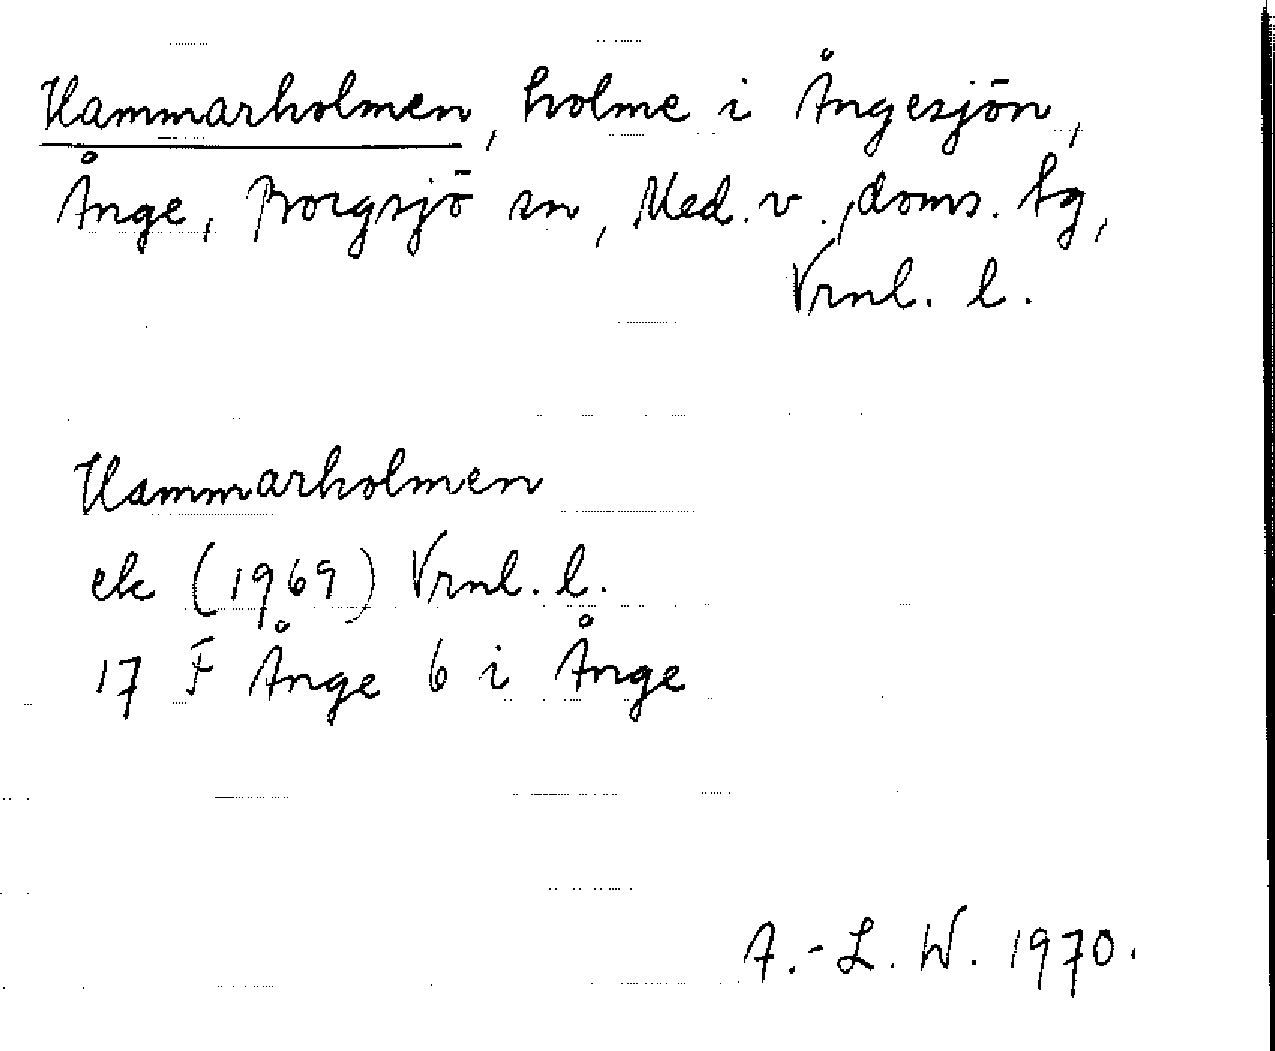 Hammarholmen, holme i Ångesjön,
Ånge, Borgsjö sn, Med. v. doms. tg,
Vrnl. l.
Hammarholmen
ek (1969) Vrnl. l.
17 F Ånge 6 i Ånge
A.-L. W. 1970.